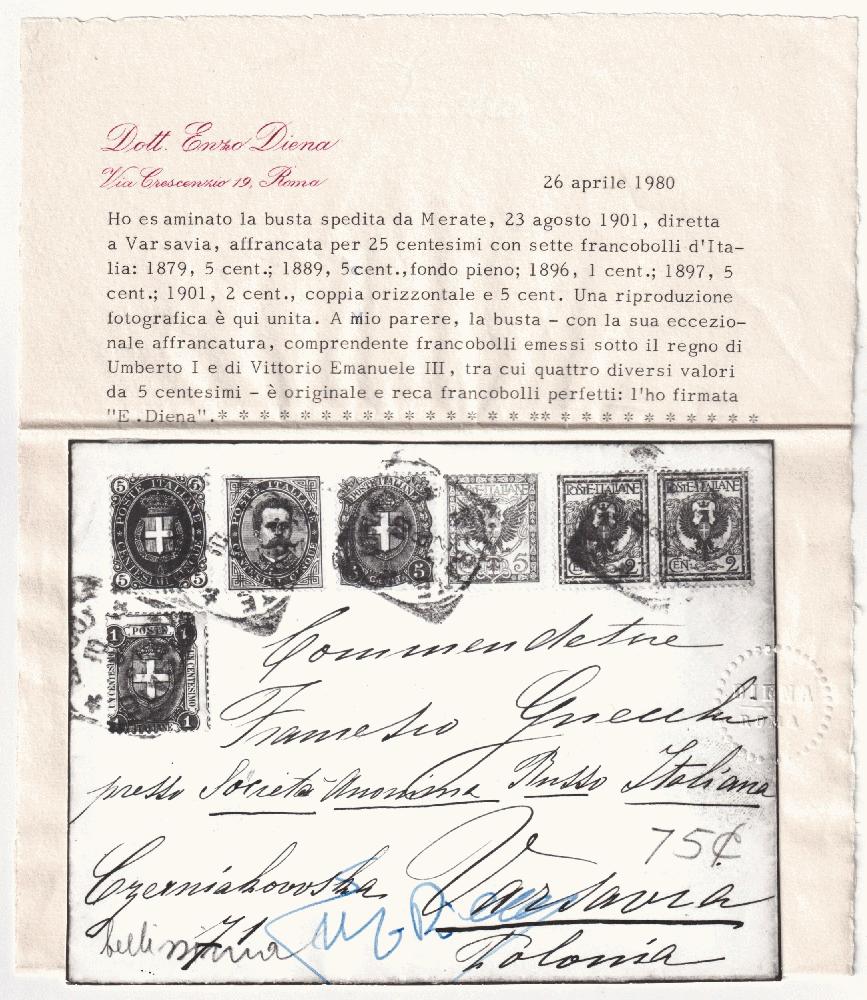 Dott. Enzo Diena
Via Crescenzio 19, Roma
26 aprile 1980
Ho esaminato la busta spedita da Merate, 23 agosto 1901, diretta
a Varsavia, affrancata per 25 centesimi con sette francobolli d'Ita-
lia: 1879, 5 cent.; 1889, 5cent.,fondo pieno; 1896, 1 cent.; 1897, 5
cent.; 1901, 2 cent., coppia orizzontale e 5 cent. Una riproduzione
fotografica è qui unita. A mio parere, la busta - con la sua eccezio-
nale affrancatura, comprendente francobolli emessi sotto il regno di
Umberto I e di Vittorio Emanuele III, tra cui quattro diversi valori
da 5 centesimi - è originale e reca francobolli perfetti: l'ho firmata
"E.Diena".* * * * * * * * * * * * * * * * * * * * * * * * * * * * * *
POSTE ITALIANE
5 5
POSTE ITALIANE
5
POSTE ITALIANE
5
POSTE ITALIANE
CEN. 2
POSTE ITALIANE
CEN. 2
1 POSTE 1
UN CENTESIMO
1 1
Commendatore
Francesco Gnecchi
DIENA
ROMA
presso Società Anonima Russo Italiana
75¢
Czerniakowska Varsavia
71
bellissima
Polonia